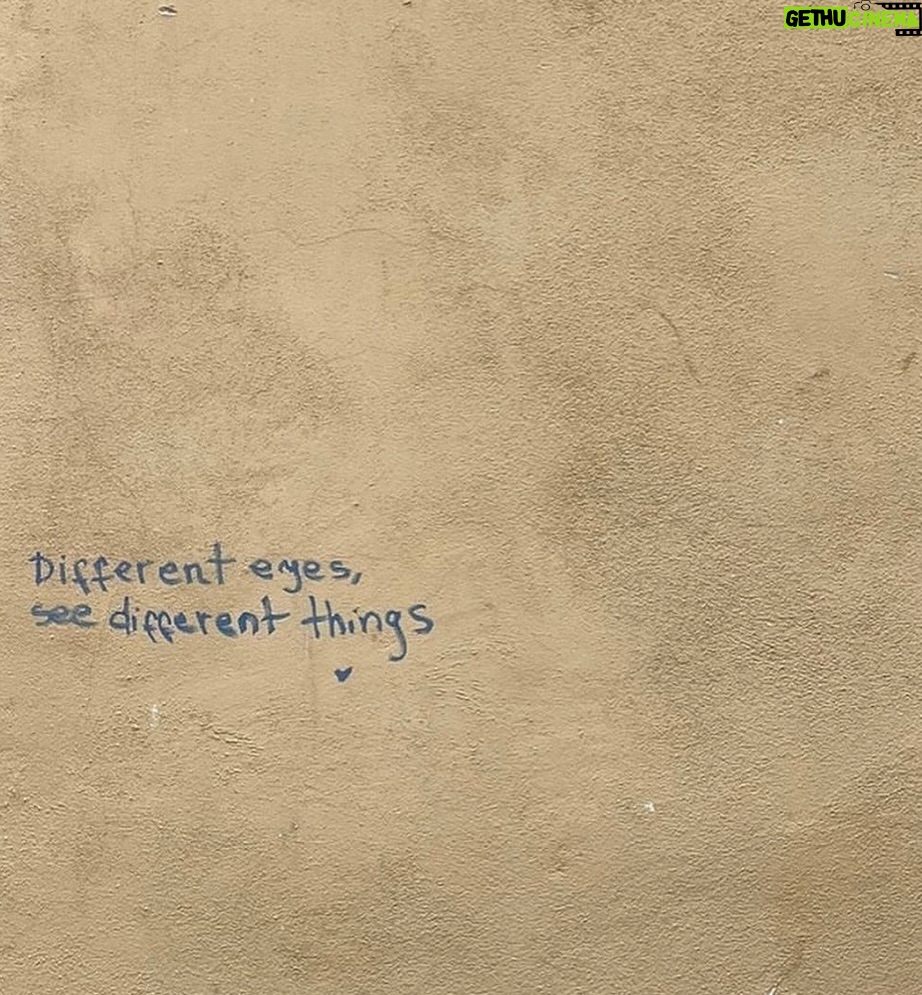 GETHU CINEMA
Different eyes,
see different things